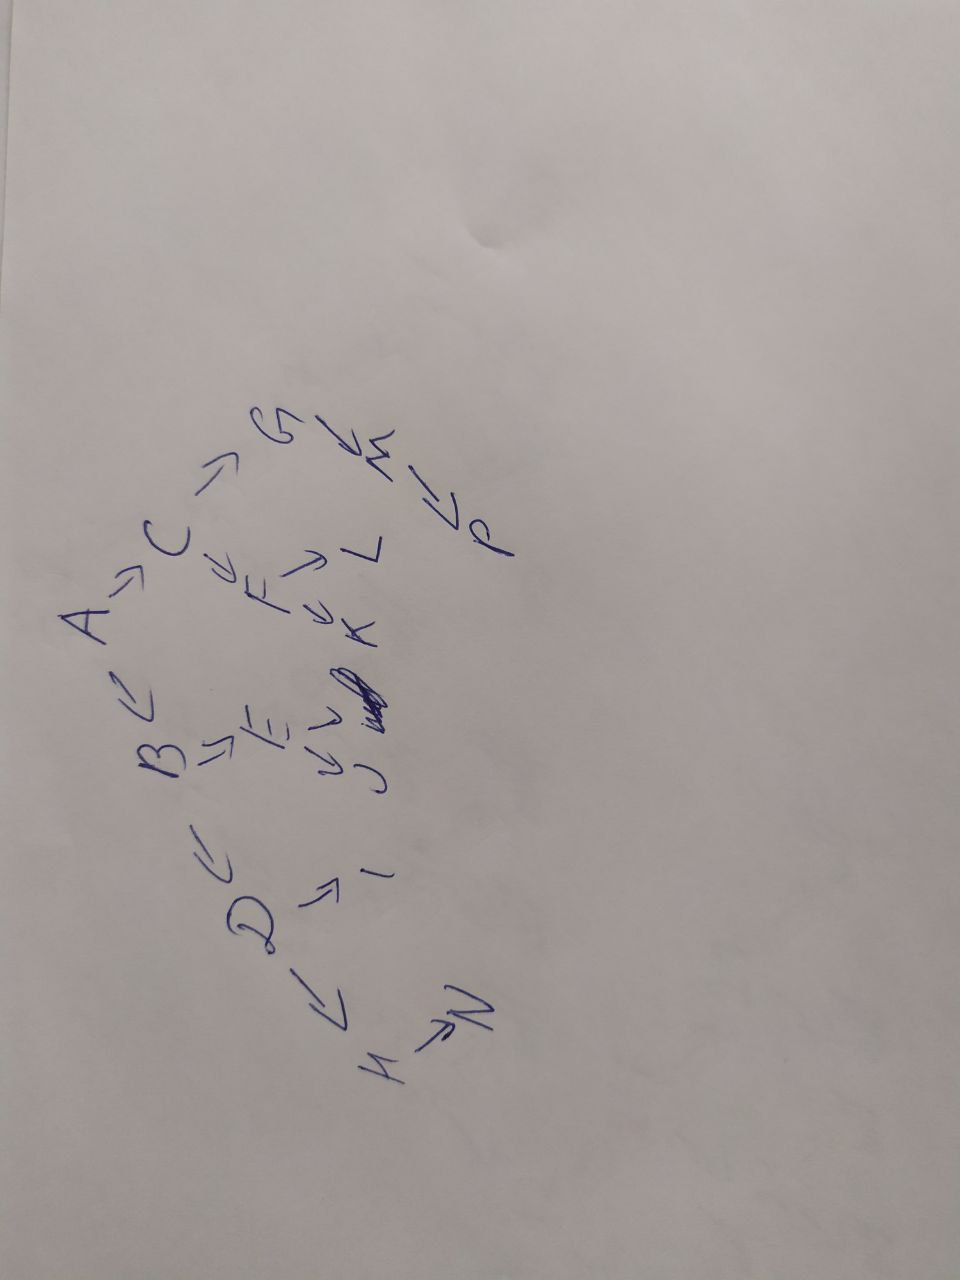 A
B C
D E F G
H I J K L M
N P